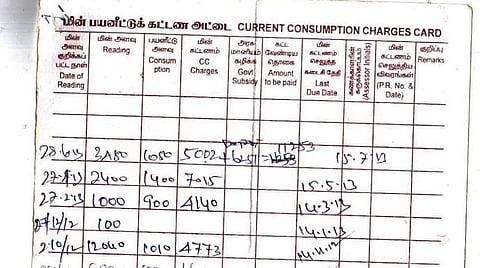 மின் பயனீட்டுக் கட்டண அட்டை CURRENT CONSUMPTION CHARGES CARD
மின் அளவு குறிக்கப் பட்ட நாள் Date of Reading
மின் அளவு Reading
பயனீட்டு அளவு Consumption
மின் கட்டணம் CC Charges
அரசு மானியம் கழிக்க Govt. Subsidy
கட்ட வேண்டிய தொகை Amount to be paid
மின் கட்டணம் செலுத்த கடைசி தேதி Last Due Date
(Assessor Initials)
மின் கட்டணம் செலுத்திய விவரங்கள் (P.R. No. & Date)
குறிப்பு Remarks
11253
28.6.13 3450 1050 5002 + 6251 = 11253 15.7.13
2400 1400 7015 15.5.13
27.2.13 1000 900 4140 14.3.13
27/12/12 100 14.1.13
2.10/12 12040 1010 4773